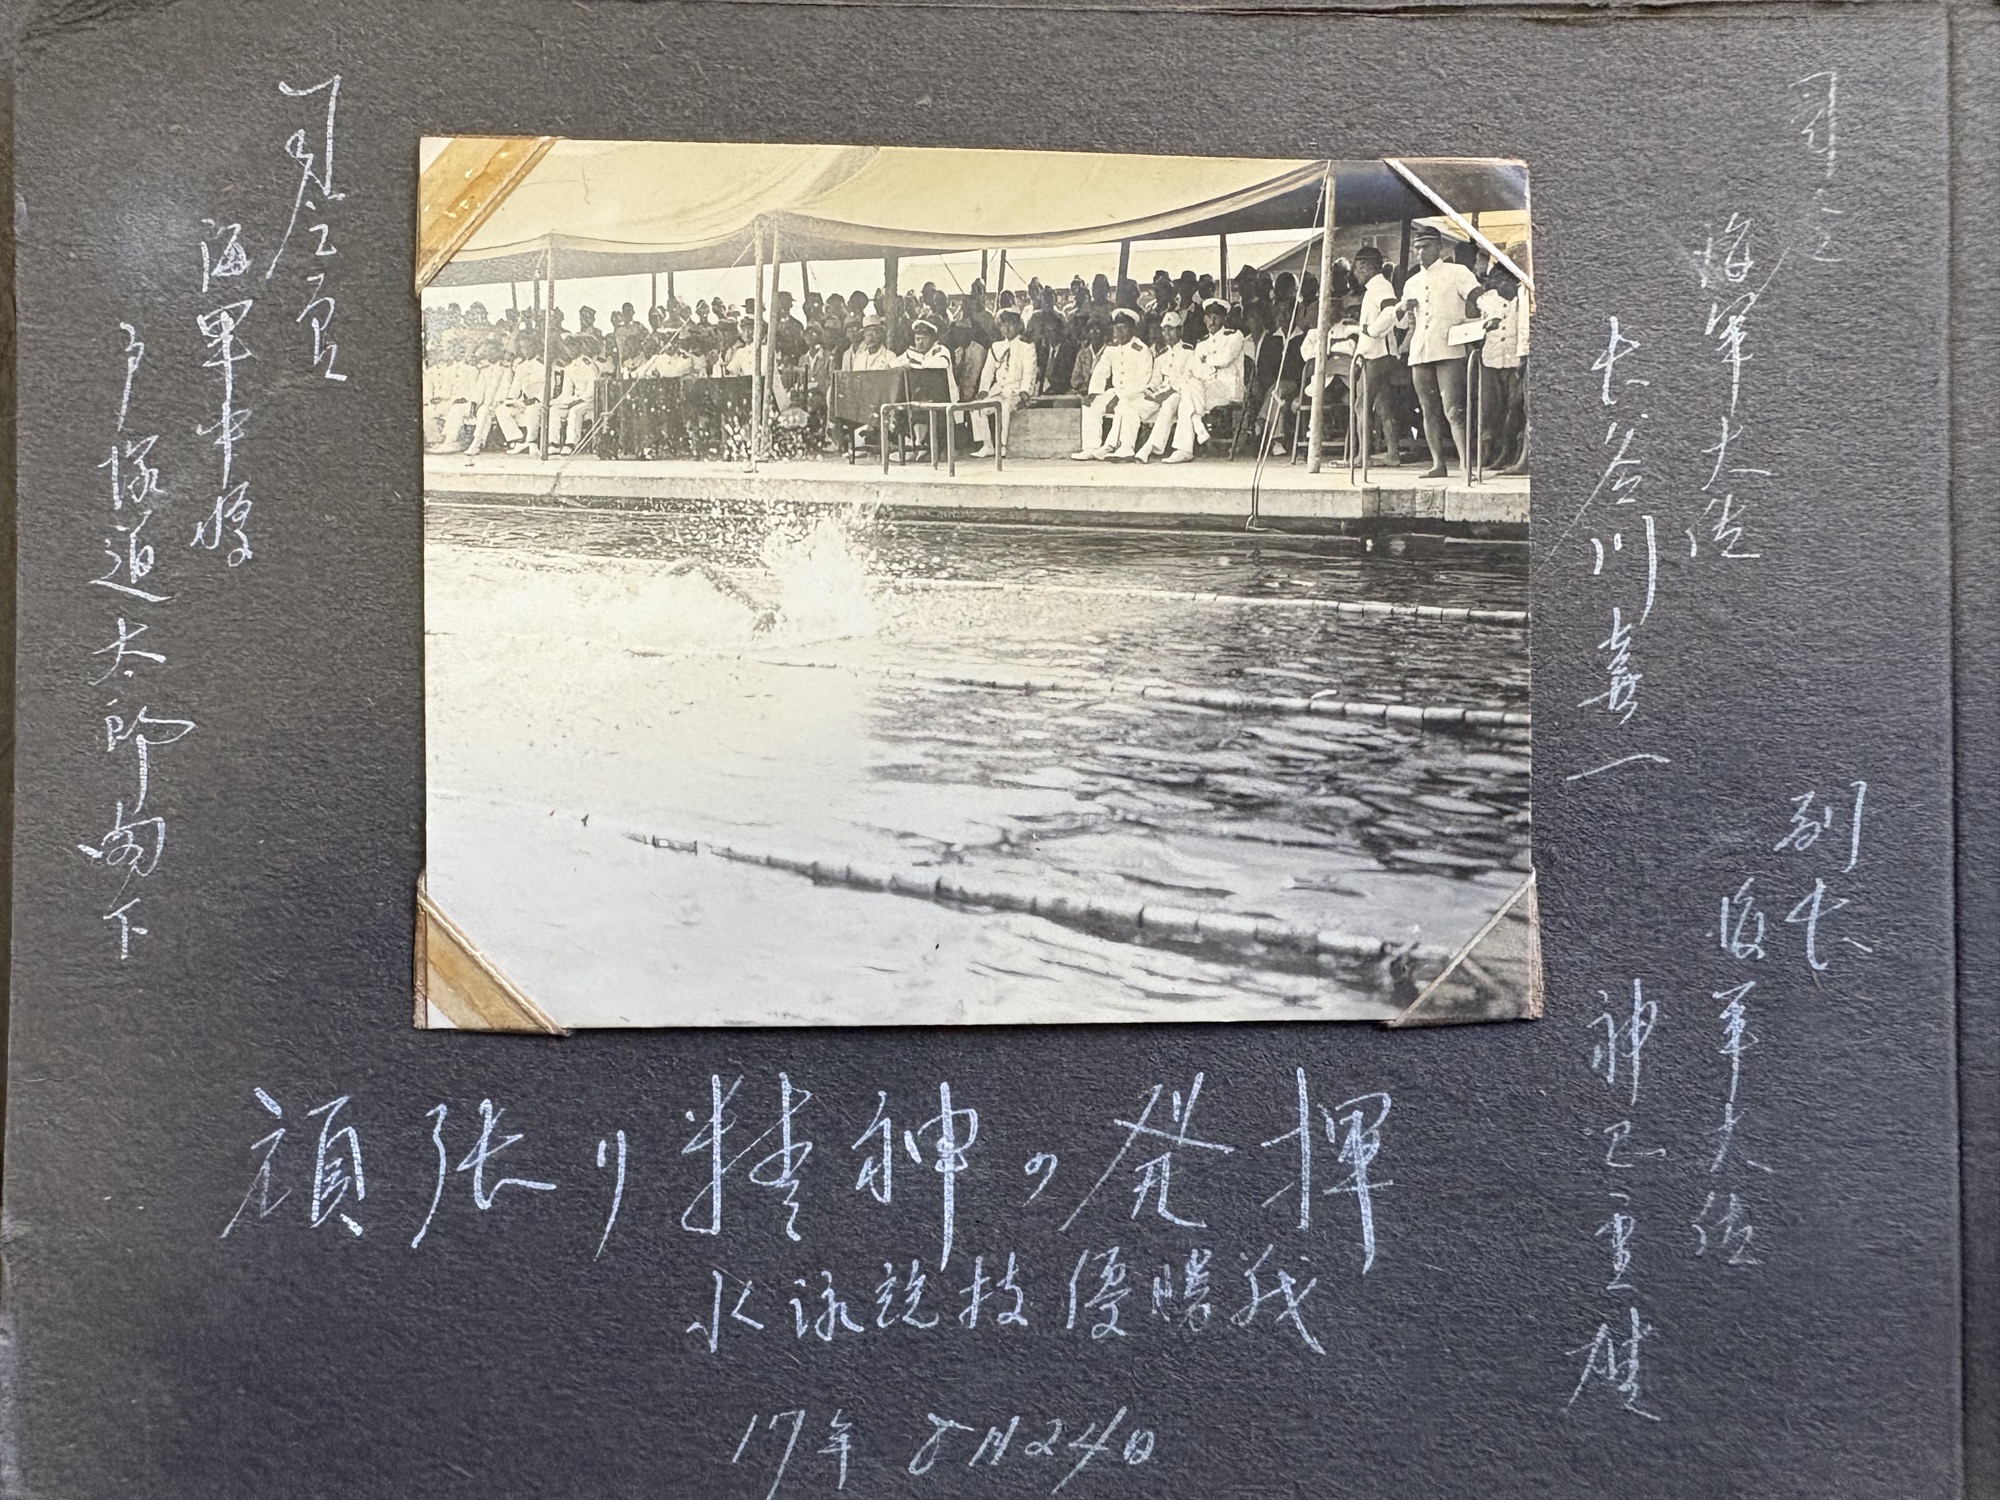 司令
海軍大佐
大谷川喜一
副長
海軍大佐
神
重
司令官
海軍中将
戸塚道太郎閣下
頑張り精神の発揮
水泳競技優勝戦
17年 8月24日